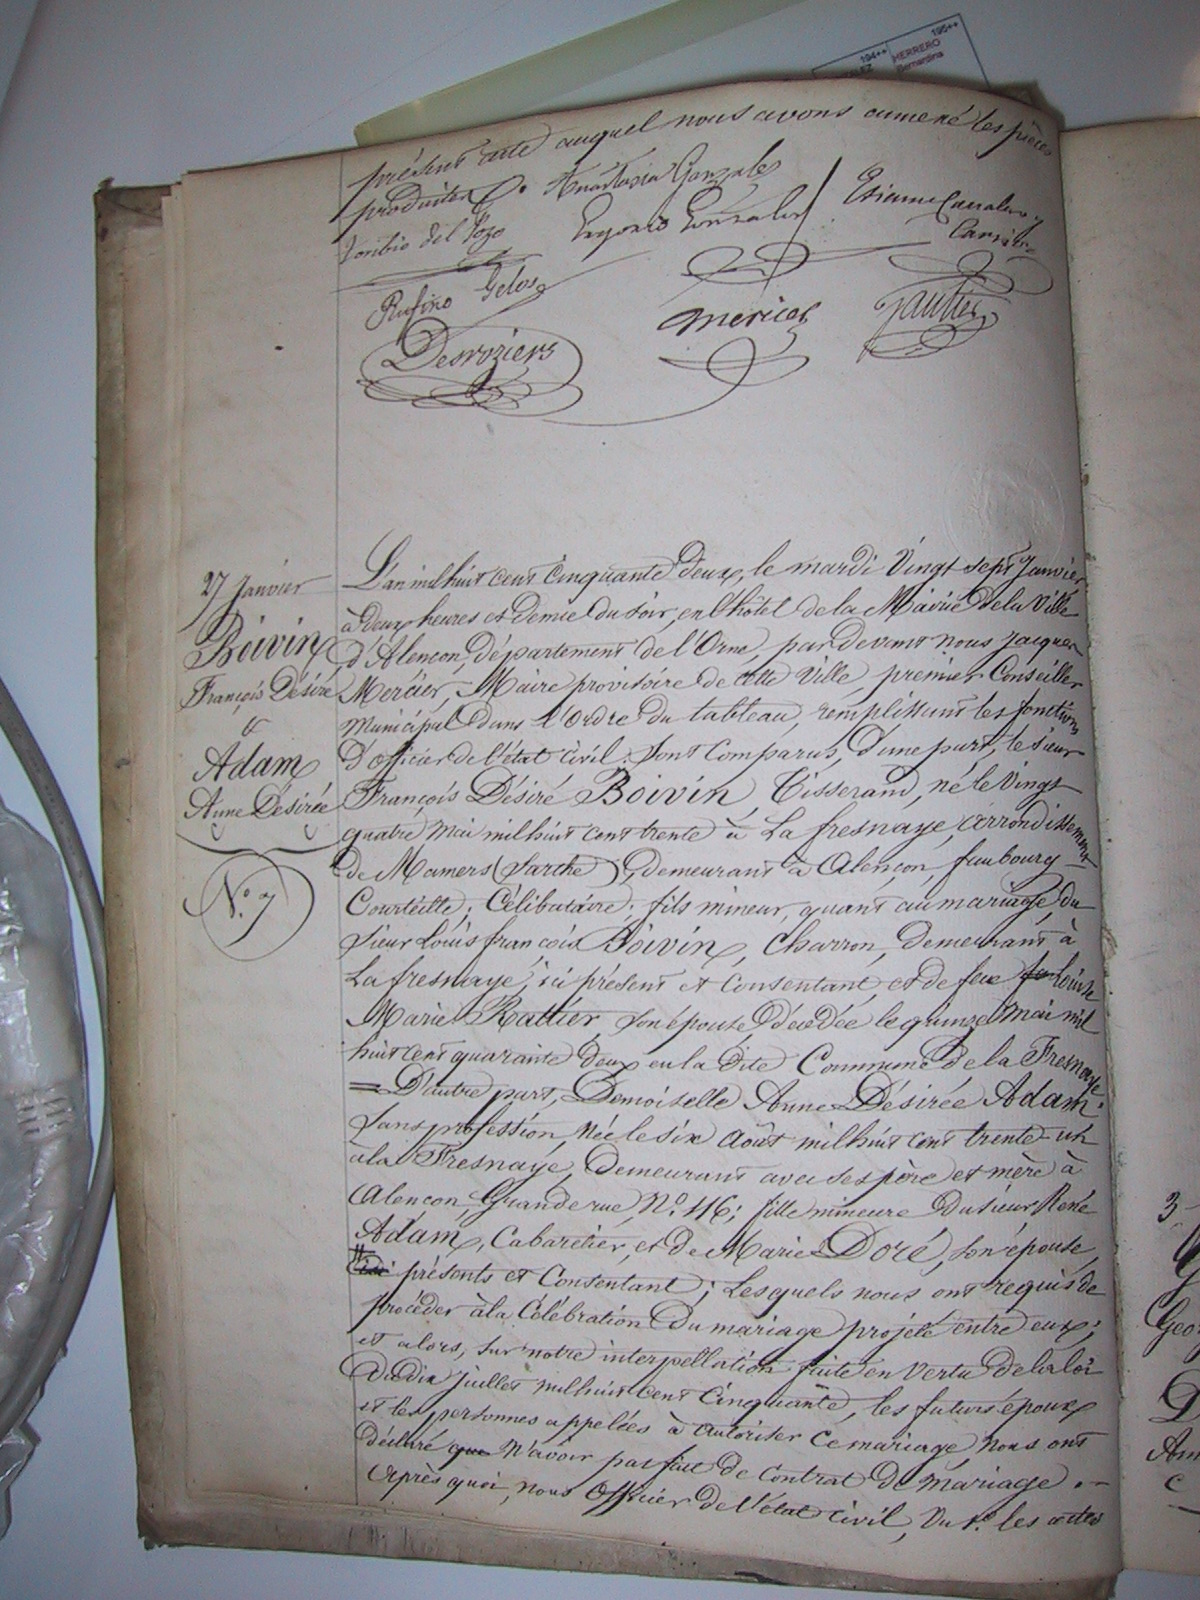 194++
195++
HERRERO
Bernardina
présent acte auquel nous avons annexé les pièces
produites. Anastasia Gonzales
Toribio del Pozo Gregorio Gonzales
Rufino Gelos
Mericer Gautier
Desroziers
27 Janvier
Boivin
François Désiré
&
Adam
Anne Désirée
N.o 7
L'an mil huit cent cinquante deux, le mardi vingt sept Janvier
à deux heures et demie du soir, en l'hôtel de la Mairie de la Ville
d'Alençon, département de l'Orne, par devant nous Jacques
Mercier, Maire provisoire de cette Ville, premier Conseiller
Municipal dans l'Ordre du tableau, remplissant les fonctions
d'officier de l'état civil. Sont comparus, d'une part, le sieur
François Désiré Boivin, Tisserand, né le vingt
quatre mai mil huit cent trente à La fresnaye, arrondissement
de Mamers (Sarthe), demeurant à Alençon, faubourg
Courteille; Célibataire; fils mineur, quant au mariage, du
sieur Louis françois Boivin, Charron, demeurant à
La fresnaye, ici présent et consentant, et de feue Louise
Marie Rattier, son épouse, décédée le quinze mai mil
huit cent quarante deux en la dite Commune de la Fresnaye.
= D'autre part, Demoiselle Anne Désirée Adam,
sans profession, née le six Août mil huit cent trente-un
à la Fresnaye, demeurant avec ses père et mère à
Alençon, Grande rue, N.o 116; fille mineure du sieur René
Adam, Cabaretier, et de Marie Doré, son épouse,
présents et Consentant; Lesquels nous ont requis de
procéder à la Célébration du mariage projeté entre eux;
et alors, sur notre interpellation faite en vertu de la loi
du dix Juillet mil huit cent cinquante, les futurs époux
et les personnes appelées à autoriser ce mariage nous ont
déclaré que n'avoir pas fait de contrat de mariage. –
Après quoi, nous Officier de l'état civil, Vu 1.o les actes
3
Geo
D
Am
c